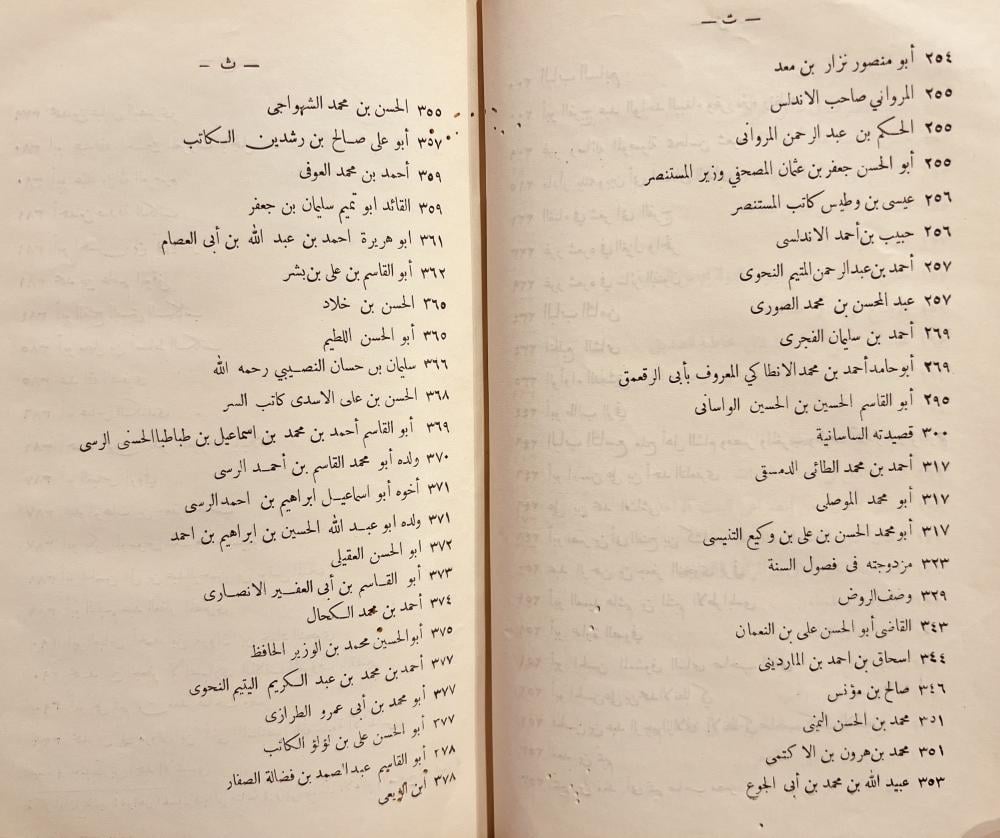 — ت —
٢٥٤ أبو منصور نزار بن معد
٢٥٥ المرواني صاحب الاندلس
٢٥٥ الحكم بن عبد الرحمن المروانى
٢٥٥ أبو الحسن جعفر بن عثمان المصحفي وزير المستنصر
٢٥٦ عيسى بن وطيس كاتب المستنصر
٢٥٦ حبيب بن أحمد الاندلسى
٢٥٧ أحمد بن عبد الرحمن المتيم النحوى
٢٥٧ عبد المحسن بن محمد الصورى
٢٦٩ أحمد بن سليمان الفجرى
٢٦٩ أبو حامد أحمد بن محمد الانطاكي المعروف بأبى الرقعمق
٢٩٥ أبو القاسم الحسين بن الحسين الواسانى
٣٠٠ قصيدته الساسانية
٣١٧ أحمد بن محمد الطائى الدمسقى
٣١٧ أبو محمد الموصلى
٣١٧ أبو محمد الحسن بن على بن وكيع التنيسى
٣٢٣ مزدوجته فى فصول السنة
٣٢٩ وصف الروض
٣٤٣ القاضى أبو الحسن على بن النعمان
٣٤٤ اسحاق بن احمد بن الماردينى
٣٤٦ صالح بن مؤنس
٣٥١ محمد بن الحسن اليمنى
٣٥١ محمد بن هرون بن الا كتمى
٣٥٣ عبيد الله بن محمد بن أبى الجوع
— ث —
٣٥٥ الحسن بن محمد الشهواجى
٣٥٧ أبو على صالح بن رشدين الكاتب
٣٥٩ أحمد بن محمد العوفى
٣٥٩ القائد ابو تميم سليمان بن جعفر
٣٦١ ابو هريرة احمد بن عبد الله بن أبى العصام
٣٦٢ أبو القاسم بن على بن بشر
٣٦٥ الحسن بن خلاد
٣٦٥ أبو الحسن اللطيم
٣٦٦ سليمان بن حسان النصيبي رحمه الله
٣٦٨ الحسن بن على الاسدى كاتب السر
٣٦٩ أبو القاسم أحمد بن محمد بن اسماعيل بن طباطبا الحسنى الرسى
٣٧٠ ولده أبو محمد القاسم بن أحمد الرسى
٣٧١ أخوه أبو اسماعيل ابراهيم بن احمد الرسى
٣٧١ ولده ابو عبد الله الحسين بن ابراهيم بن احمد
٣٧٢ ابو الحسن العقيلى
٣٧٣ أبو القاسم بن أبى العفير الانصارى
٣٧٤ أحمد بن محمد الكحال
٣٧٥ أبو الحسين محمد بن الوزير الحافظ
٣٧٧ أحمد بن محمد بن عبد الكريم اليتيم النحوى
٣٧٧ أبو محمد بن أبى عمرو الطرازى
٢٧٧ أبو الحسن على بن لؤلؤ الكاتب
٢٧٨ أبو القاسم عبد الصمد بن فضالة الصفار
٣٧٨ ابن